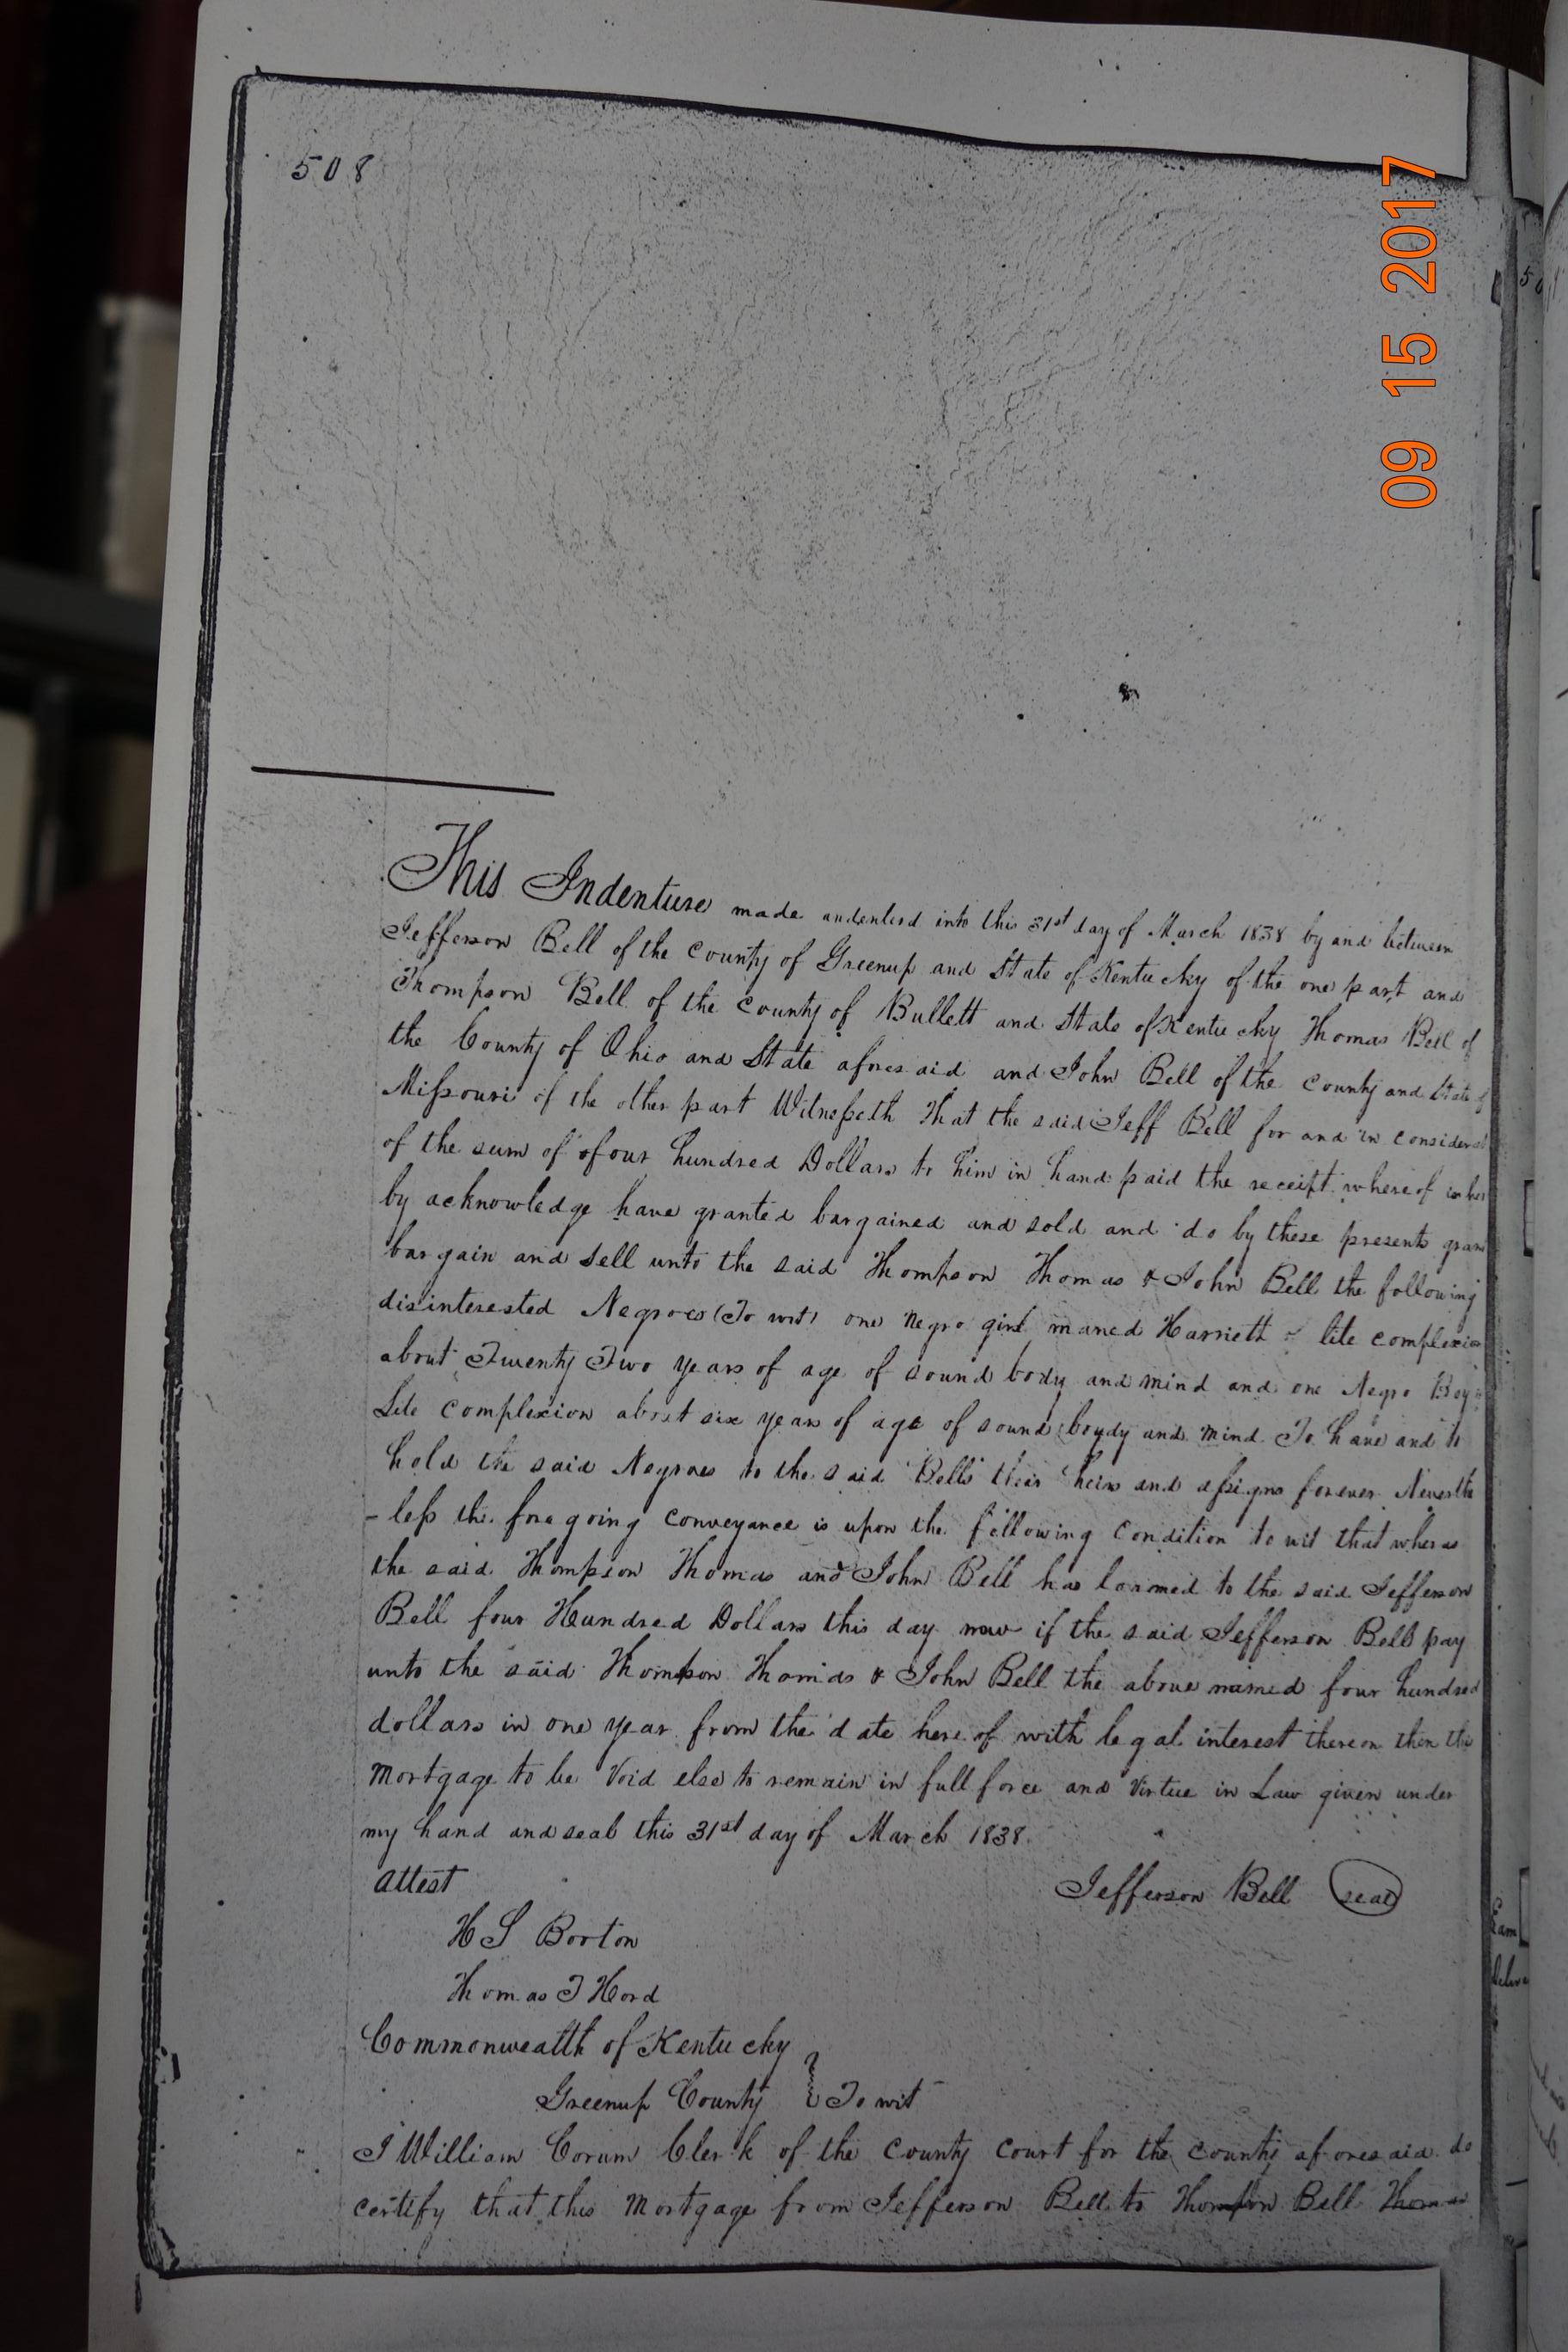 508
09 15 2017
This Indenture made andenterd into this 31st day of March 1838 by and between
Jefferson Bell of the county of Greenup and State of Kentucky of the one part and
Thompson Bell of the county of Bullett and State of Kentucky Thomas Bell of
the County of Ohio and State aforesaid and John Bell of the county and State of
Missouri of the other part Witnesseth That the said Jeff Bell for and in considerat
of the sum of of four hundred Dollars to him in hand paid the receipt whereof is her
by acknowledge have granted bargained and sold and do by these presents gran
bargain and sell unto the said Thompson Thomas & John Bell the following
disinterested Negroes (To wit) one negro girl named Harriett of lite complexion
about Twenty Two years of age of sound body and mind and one Negro Boy
Lite complexion about six years of age of sound boydy and mind To have and to
hold the said Negroes to the said Bells their heirs and assigns forever Neverthe
-less the foregoing conveyance is upon the following condition to wit that wheras
the said Thompson Thomas and John Bell has loanned to the said Jefferson
Bell four Hundred Dollars this day now if the said Jefferson Bell pay
unto the said Thompson Thomas & John Bell the above named four hundred
dollars in one year from the date hereof with legal interest thereon then this
mortgage to be Void else to remain in full force and Virtue in Law given under
my hand and seal this 31st day of March 1838.
Attest
Jefferson Bell seal
H S Borton
Thomas T Hord
Commonwealth of Kentucky
Greenup County } To wit
I William Corum Clerk of the County Court for the county aforesaid do
certify that this Mortgage from Jefferson Bell to Thompson Bell Thomas